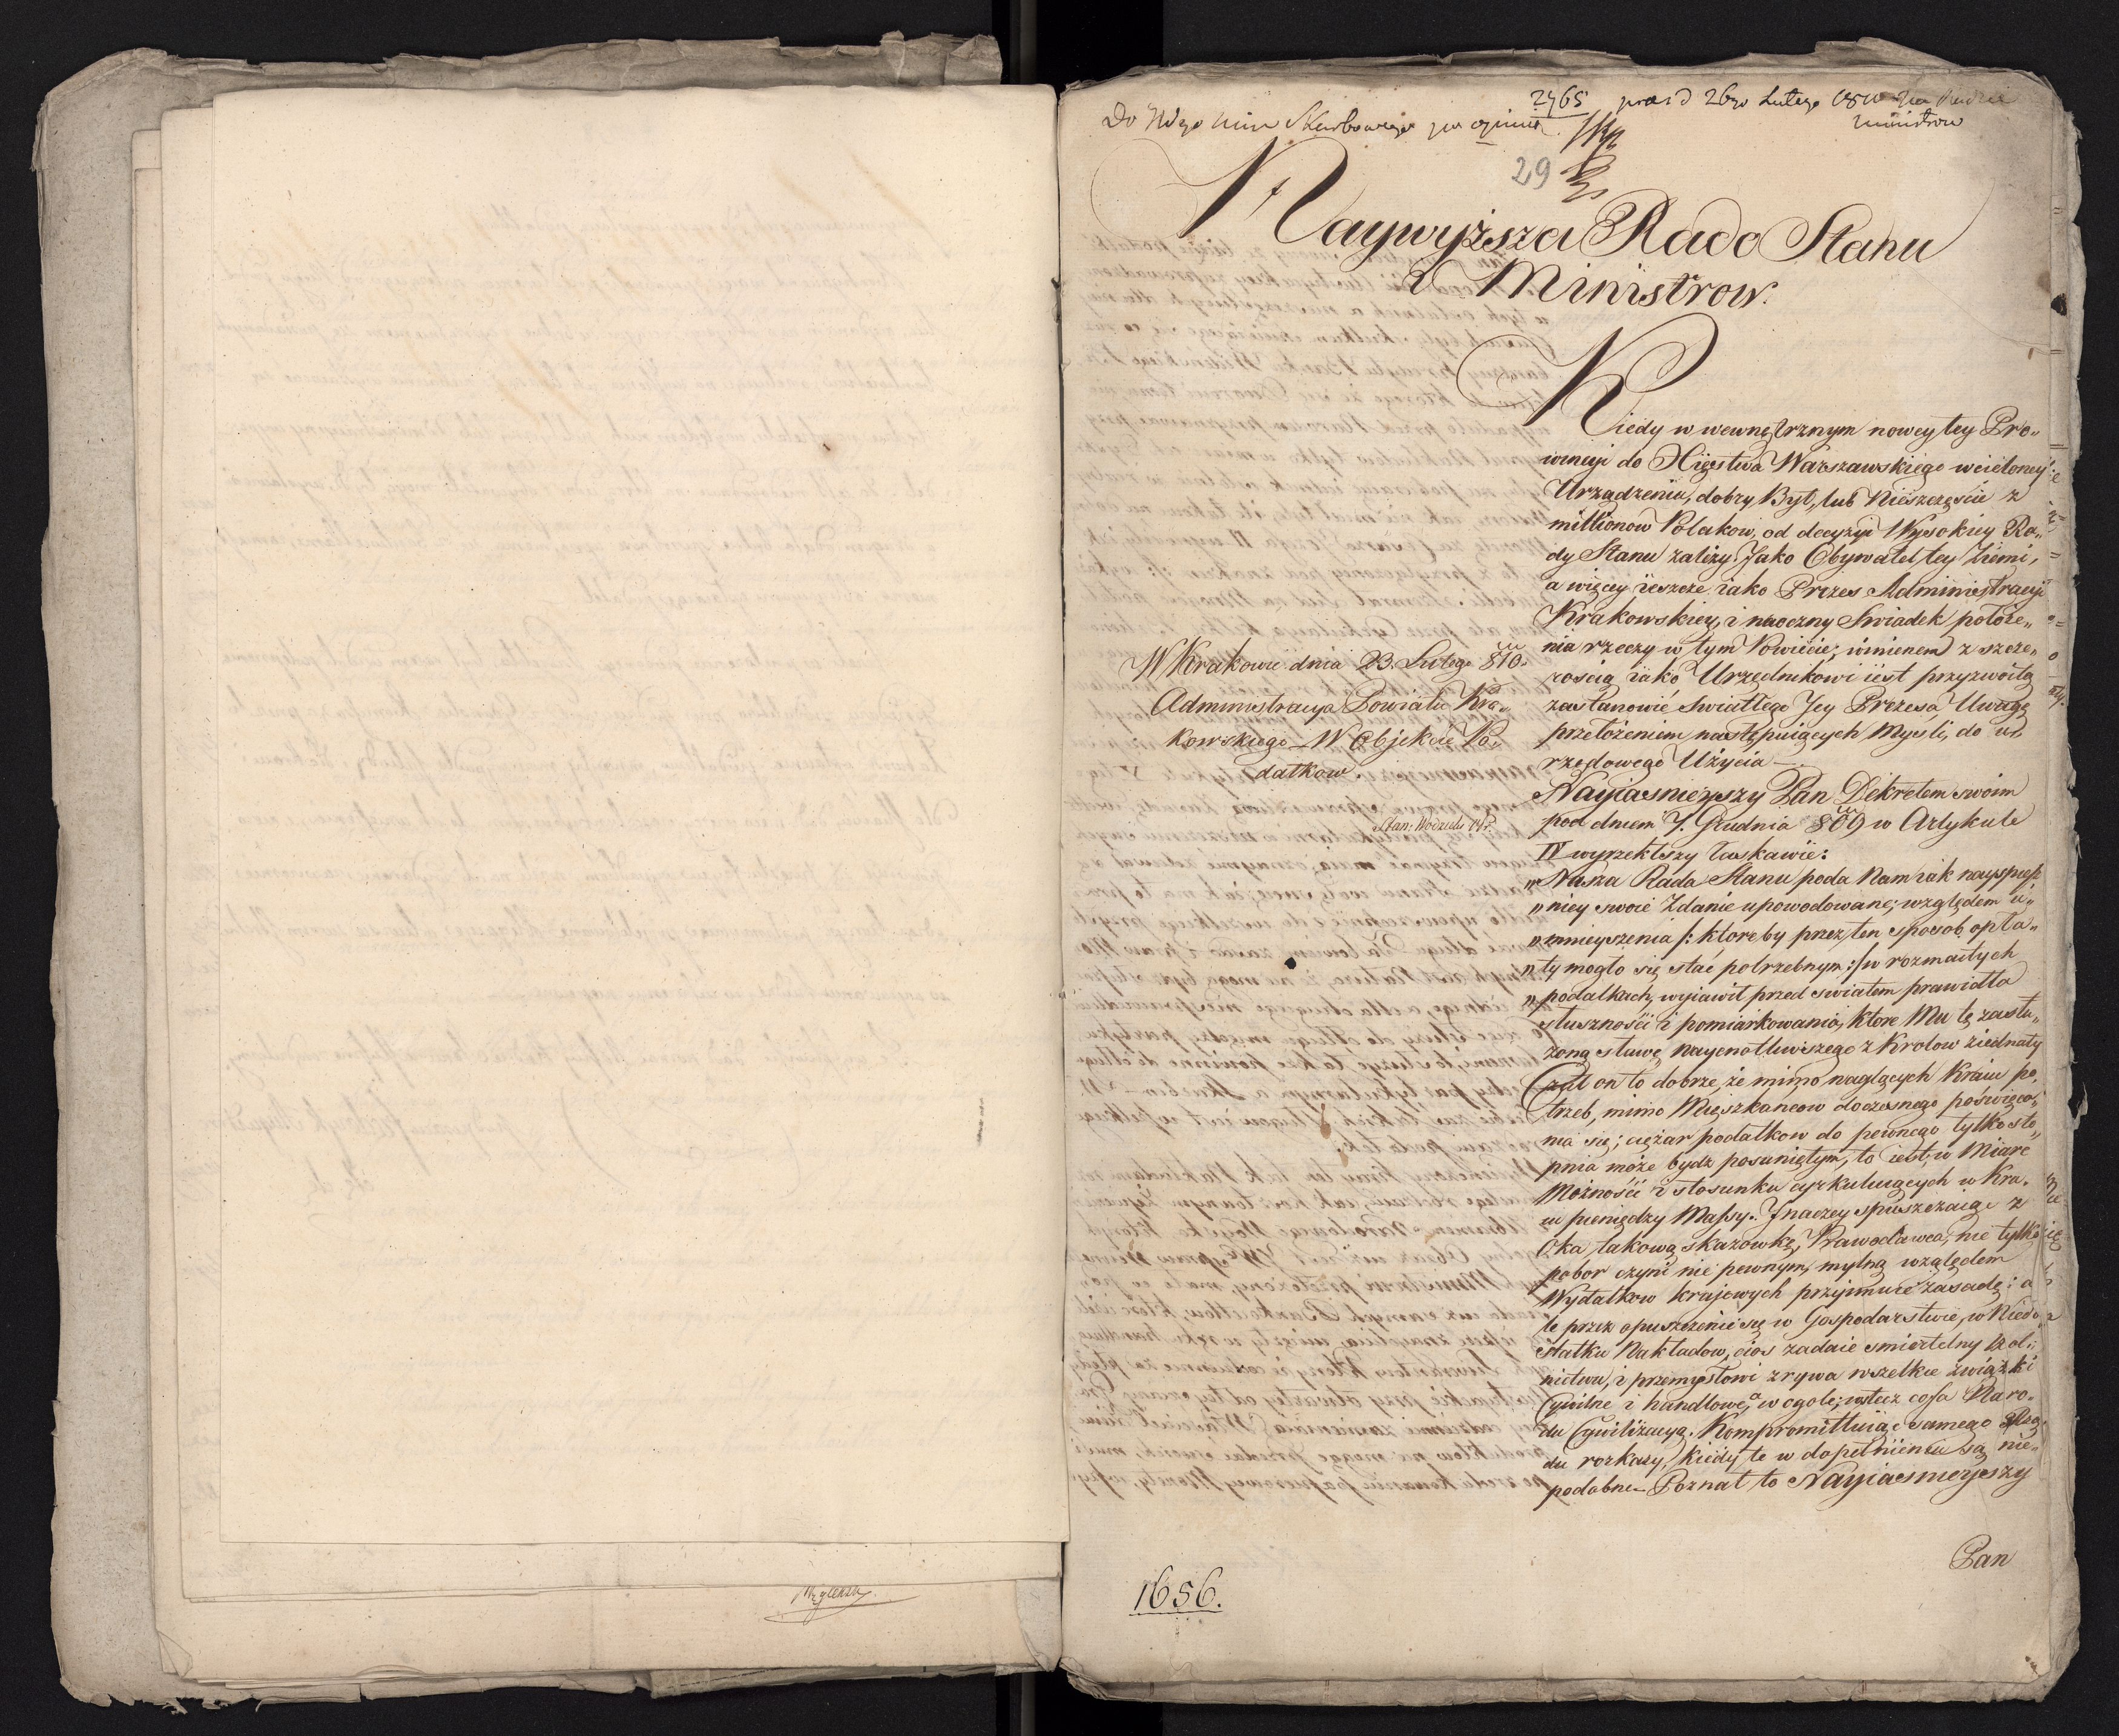 2765 praes d 26go Lutego 1810 na Radzie
Ministrow
Do Wgo Min Skarbowego po opinią.
29
Naywyższa Rado Stanu
i Ministrow.
Kiedy w wewnętrznym nowey tey Pro„
wincyi do Xięstwa Warszawskiego wcieloney
Urządzeniu, dobry Byt, lub Nieszczęście 2
millionow Polakow, od decyzyi Wysokiey Ra„
dy Stanu zależy. Jako Obywatel tey Ziemi,
a więcey ieszcze iako Prezes Administracyi
Krakowskiey, i naoczny Swiadek położe„
nia rzeczy w tym Powiecie; winienem z szcze„
rością iako Urzędnikowi iest przyzwoitą
zastanowić Swiatłego Jey Prezesa Uwagę
przełożeniem następuiących Myśli, do u„
rzędowego Użycia —
W Krakowie dnia 23. Lutego 810.
Administracya Powiatu Kra„
kowskiego — W Objekcie Po„
datkow.
Stan: Wodzicki
Nayiasnieyszy Pan Dekretem swoim
pod dniem 7. Grudnia 809 w Artykule
IV wyrzekłszy łaskawie:
„Nasza Rada Stanu poda Nam iak nayspiesz
„niey swoie Zdanie upowodowane; względem u„
„mnieyszenia /: ktoreby przez ten sposob opła„
„ty mogło się stać potrzebnym :/ w rozmaitych
„podatkach, wyiawił przed swiatem prawidła
słuszności i pomiarkowania, ktore Mu tę zasłu„
żoną sławę naycnotliwszego z Krolow ziednały
Czuł on to dobrze, że mimo naglących Kraiu po„
trzeb, mimo Mieszkancow doczesnego poświęca„
nia się; ciężar podatkow do pewnego tylko sto„
pnia może bydz posuniętym, to iest, w Miarę
Możności i stosunku cyrkuluiących w Kra„
iu pieniędzy Massy. Jnaczey spuszczaiąc z
Oka takową skazowkę, Prawodawca, nie tylko
pobor czyni nie pewnym, mylną względem
Wydatkow krajowych przyimuie zasadę: a
le przez opuszczenie się w Gospodarstwie, w Niedo„
statku Nakładow, cios zadaie smiertelny Rol„
nictwu, i przemysłowi zrywa wszelkie związki
Cywilne i handlowe, a w ogole, wstecz cofa Naro„
du Cywilizacyą. Kompromittuiąc samego Rzą„
du rozkazy, kiedy te w dopełnieniu są nie„
podobne — Poznał to Nayiasnieyszy
Pan
1656.